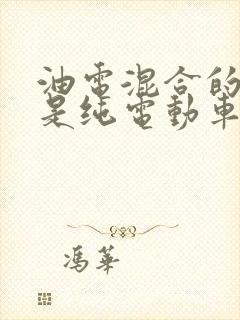 油電混合的
是纯電動車
馮華